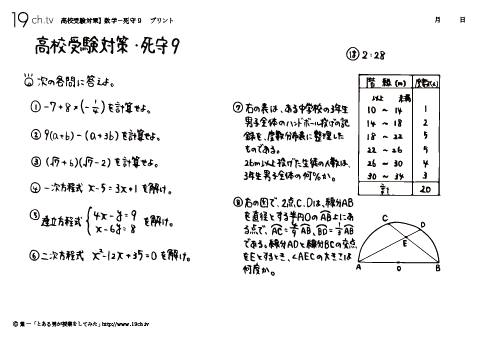 19ch.tv 高校受験対策】数学-死守9 プリント 月 日
高校受験対策・死守9
目 2:28
次の各問に答えよ。
① -7+8×(-1/4)を計算せよ。
② 9(a+b)-(a+3b)を計算せよ。
③ (√7+6)(√7-2)を計算せよ。
④ 一次方程式 x-5=3x+1を解け。
⑤ 連立方程式 { 4x-y=9
x-6y=8 を解け。
⑥ 二次方程式 x²-12x+35=0を解け。
⑦ 右の表は、ある中学校の3年生
男子全体のハンドボール投げの記
録を、度数分布表に整理した
ものである。
26m以上投げた生徒の人数は、
3年生男子全体の何%か。
階級(m) 度数(人)
以上 未満
10 ~ 14 1
14 ~ 18 2
18 ~ 22 5
22 ~ 26 5
26 ~ 30 4
30 ~ 34 3
計 20
⑧ 右の図で、2点C、Dは、線分AB
を直径とする半円Oの⌒AB上にあ
る点で、⌒AC=⌒AB、⌒BD=1/3⌒AB
である。線分ADと線分BCの交点
をEとするとき、∠AECの大きさは
何度か。
C
D
E
A
O
B
Ⓒ 葉一「とある男が授業をしてみた」http://www.19ch.tv